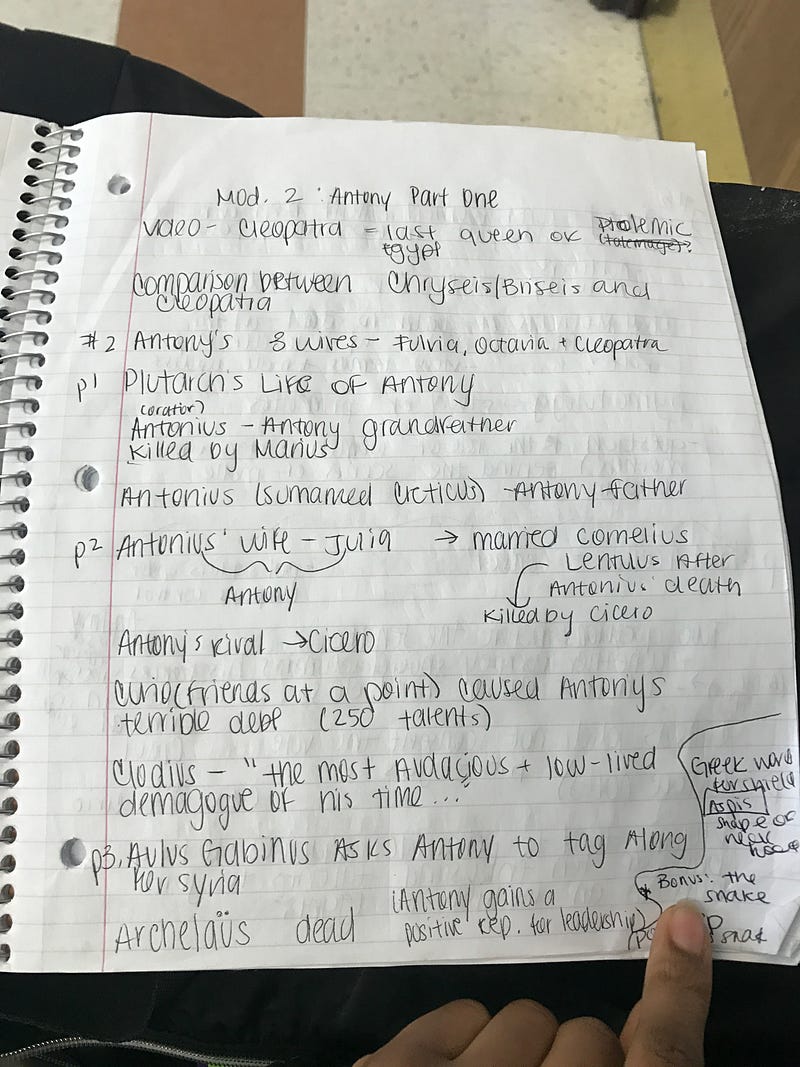 Mod. 2 : Antony Part One
video - Cleopatra = last queen of Ptolemic
Egypt
Comparison between Chryseis/Briseis and
Cleopatra
#2 Antony's 3 wives - Fulvia, Octavia + Cleopatra
p1 Plutarch's Life of Antony
(orator)
Antonius - Antony grandfather
killed by Marius
Antonius (surnamed Creticus) - Antony father
p2 Antonius' wife - Julia → married Cornelius
Lentulus After
Antonius' death
Antony
killed by Cicero
Antony's rival → Cicero
Curio (friends at a point) caused Antony's
terrible debt (250 talents)
Clodius - "the most Audacious + low-lived
demagogue of his time...
p3. Aulus Gabinus Asks Antony to tag Along
for syria
Archelaüs dead (Antony gains a
positive rep. for leadership)
Greek word
for shield
Aspis
shape of
near
Bonus: the
snake